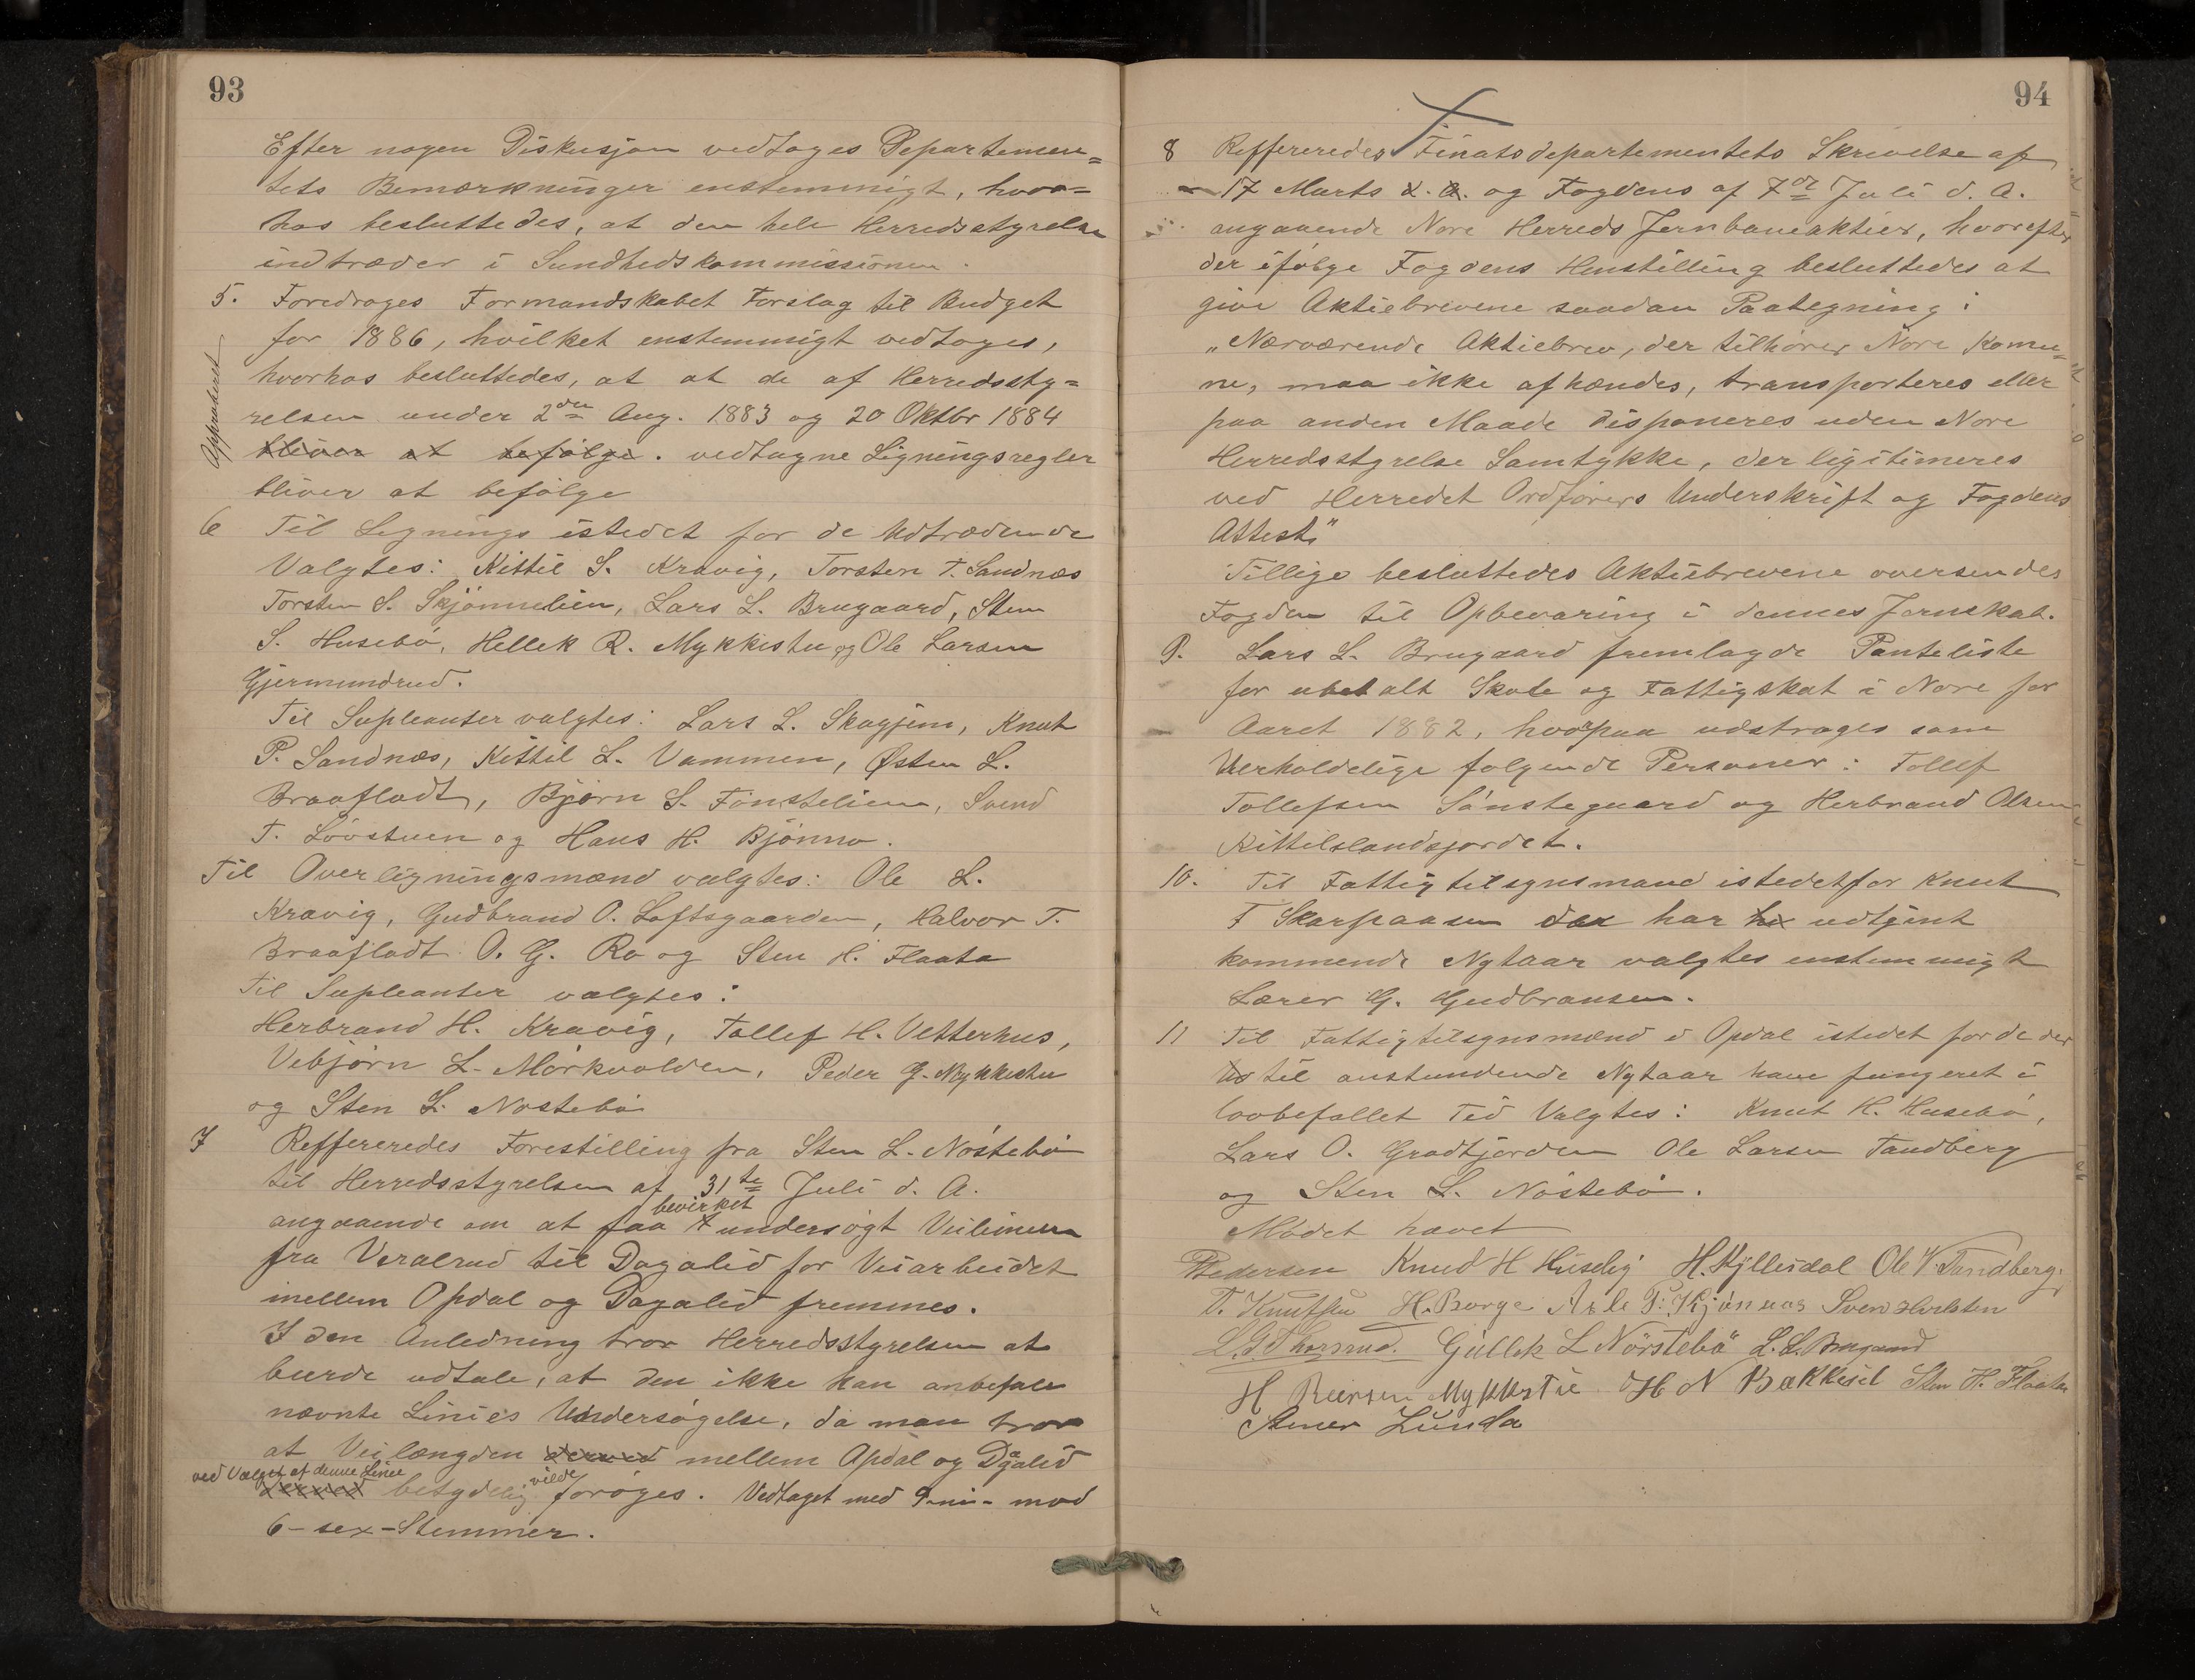 93
Efter nogen Diskusjon vedtoges Departemen=
tets Bemærkninger enstemmigt, hvor=
hos besluttedes, at den hele Herredsstyrelse
indtræder i Sundhedskommissionen.
5. Foredroges Formandskabet Forslag til Budget
for 1886, hvilket enstemmigt vedtoges,
hvorhos besluttedes, at at de af Herredssty=
relsen under 2den Aug. 1883 og 20 Oktbr 1884
bliver at befølge. vedtagne Ligningsregler
bliver at befølge
Approberet
6 Til Lignings istedet for de Udtrædende
Valgtes: Kittil S. Kravig, Torsten T. Sandnæs
Torsten S. Skjønnelien, Lars L. Brugaard, Sten
S. Husebø, Hellek R. Mykkestu og Ole Larsen
Gjermundrud.
Til Supleanter valgtes: Lars L. Skagjem, Knut
P. Sandnæs, Kittil L. Vammen, Østen L.
Braafladt, Bjørn S. Fønstelien, Svend
T. Løvstuen og Hans H. Bjønno.
Til Overligningsmænd valgtes: Ole L.
Kravig, Gudbrand O. Loftsgaarden, Halvor T.
Braafladt O. G. Ro og Sten H. Flaata
Til Supleanter valgtes:
Herbrand H. Kravig, Tollef H. Vetterhus,
Vebjørn L. Mørkvolden, Peder G. Mykkestu
og Sten L. Nøstebø
7 Reffereredes Forestilling fra Sten L. Nøstebø
til Herredsstyrelsen af 31te Juli d. A.
angaaende om at faa bevirket undersøgt Veilinien
fra Veralrud til Dagalid for Veiarbeidet
mellem Opdal og Dagalid fremmes.
I den Anledning tror Herredsstyrelsen at
burde udtale, at den ikke kan anbefale
nævnte Linies Undersøgelse, da man tror
at Veilængden derved mellem Opdal og Dagalid
ved Valget af denne Linie
derved betydelig vilde forøges. Vedtaget med 9-ni- mod
6-sex-Stemmer.
94
8 Reffereredes Finatsdepartementets Skrivelse af
17 Marts d. A. og Fogdens af 7de Juli d. A.
angaaende Nore Herreds Jernbaneaktier, hvorefter
der ifølge Fogdens Henstilling besluttedes at
give Aktiebrevene saadan Paategning:
„Nærværende Aktiebrev, der tilhører Nore Komu=
ne, maa ikke afhændes, transporteres eller
paa anden Maade disponeres uden Nore
Herredsstyrelse Samtykke, der legitimeres
ved Herredet Ordførers Underskrift og Fogdens
Attest"
Tillige besluttedes Aktiebrevene oversendes
Fogden til Opbevaring i dennes Jernskab.
9. Lars L. Brugaard fremlagde Panteliste
for ubetalt Skole og Fattigskat i Nore for
Aaret 1882, hvorpaa udstroges som
Uerholdelige følgende Personer: Tollef
Tollefsen Sønstegaard og Herbrand Olsen
Kittilslandsjordet.
10. Til Fattigtilsynsmand istedetfor Knut
T Skarpaasen der har udtjent
kommende Nytaar valgtes enstemmigt
Lærer G. Gudbransen.
11 Til Fattigtilsynsmænd i Opdal istedet for de der
til anstundende Nytaar have fungeret i
lovbefallet Tid Valgtes: Knut H. Husebø,
Lars O. Grodtjorden Ole Larsen Tandberg
og Sten L. Nøstebø.
Mødet hævet
Pedersen Knud H Huseby H. Kyllesdal Ole V. Tandberg.
T. Knutsen H. Borge Asle P: Kjønaas Sven
L. G. Thorsrud. Gullek L Nörstebö L. L. Brugaard
H Reiersen Mykkstu H N Bækkeset Sten H. Flaata
Stener Lunda